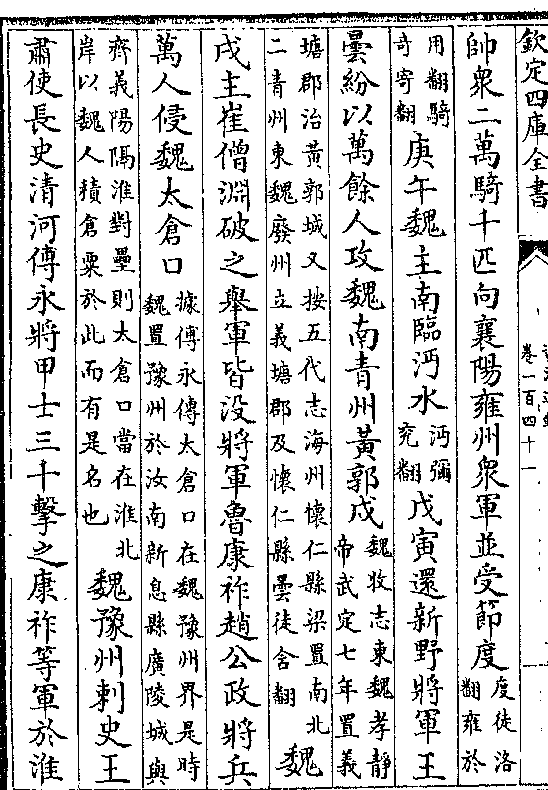 欽定四庫全書
卷一百四十一
帥衆二萬騎十匹向襄陽雍州衆軍並受節度度徒洛翻雍於
用翻騎奇寄翻庚午魏主南臨沔水沔彌兖翻戊寅還新野將軍王
曇紛以萬餘人攻魏南青州黃郭戍魏收志東魏孝静帝武定七年置義
塘郡治黃郭城又按五代志海州懷仁縣梁置南北二青州東魏廢州立義塘郡及懷仁縣曇徒含翻魏
戍主崔僧淵破之舉軍皆没將軍魯康祚趙公政將兵
萬人侵魏太倉口據傅永傳太倉口在魏豫州界是時魏置豫州於汝南新息縣廣陵城與
齊義陽隔淮對壘則太倉口當在淮北岸以魏人積倉粟於此而有是名也魏豫州刺史王
肅使長史清河傅永將甲士三千擊之康祚等軍於淮